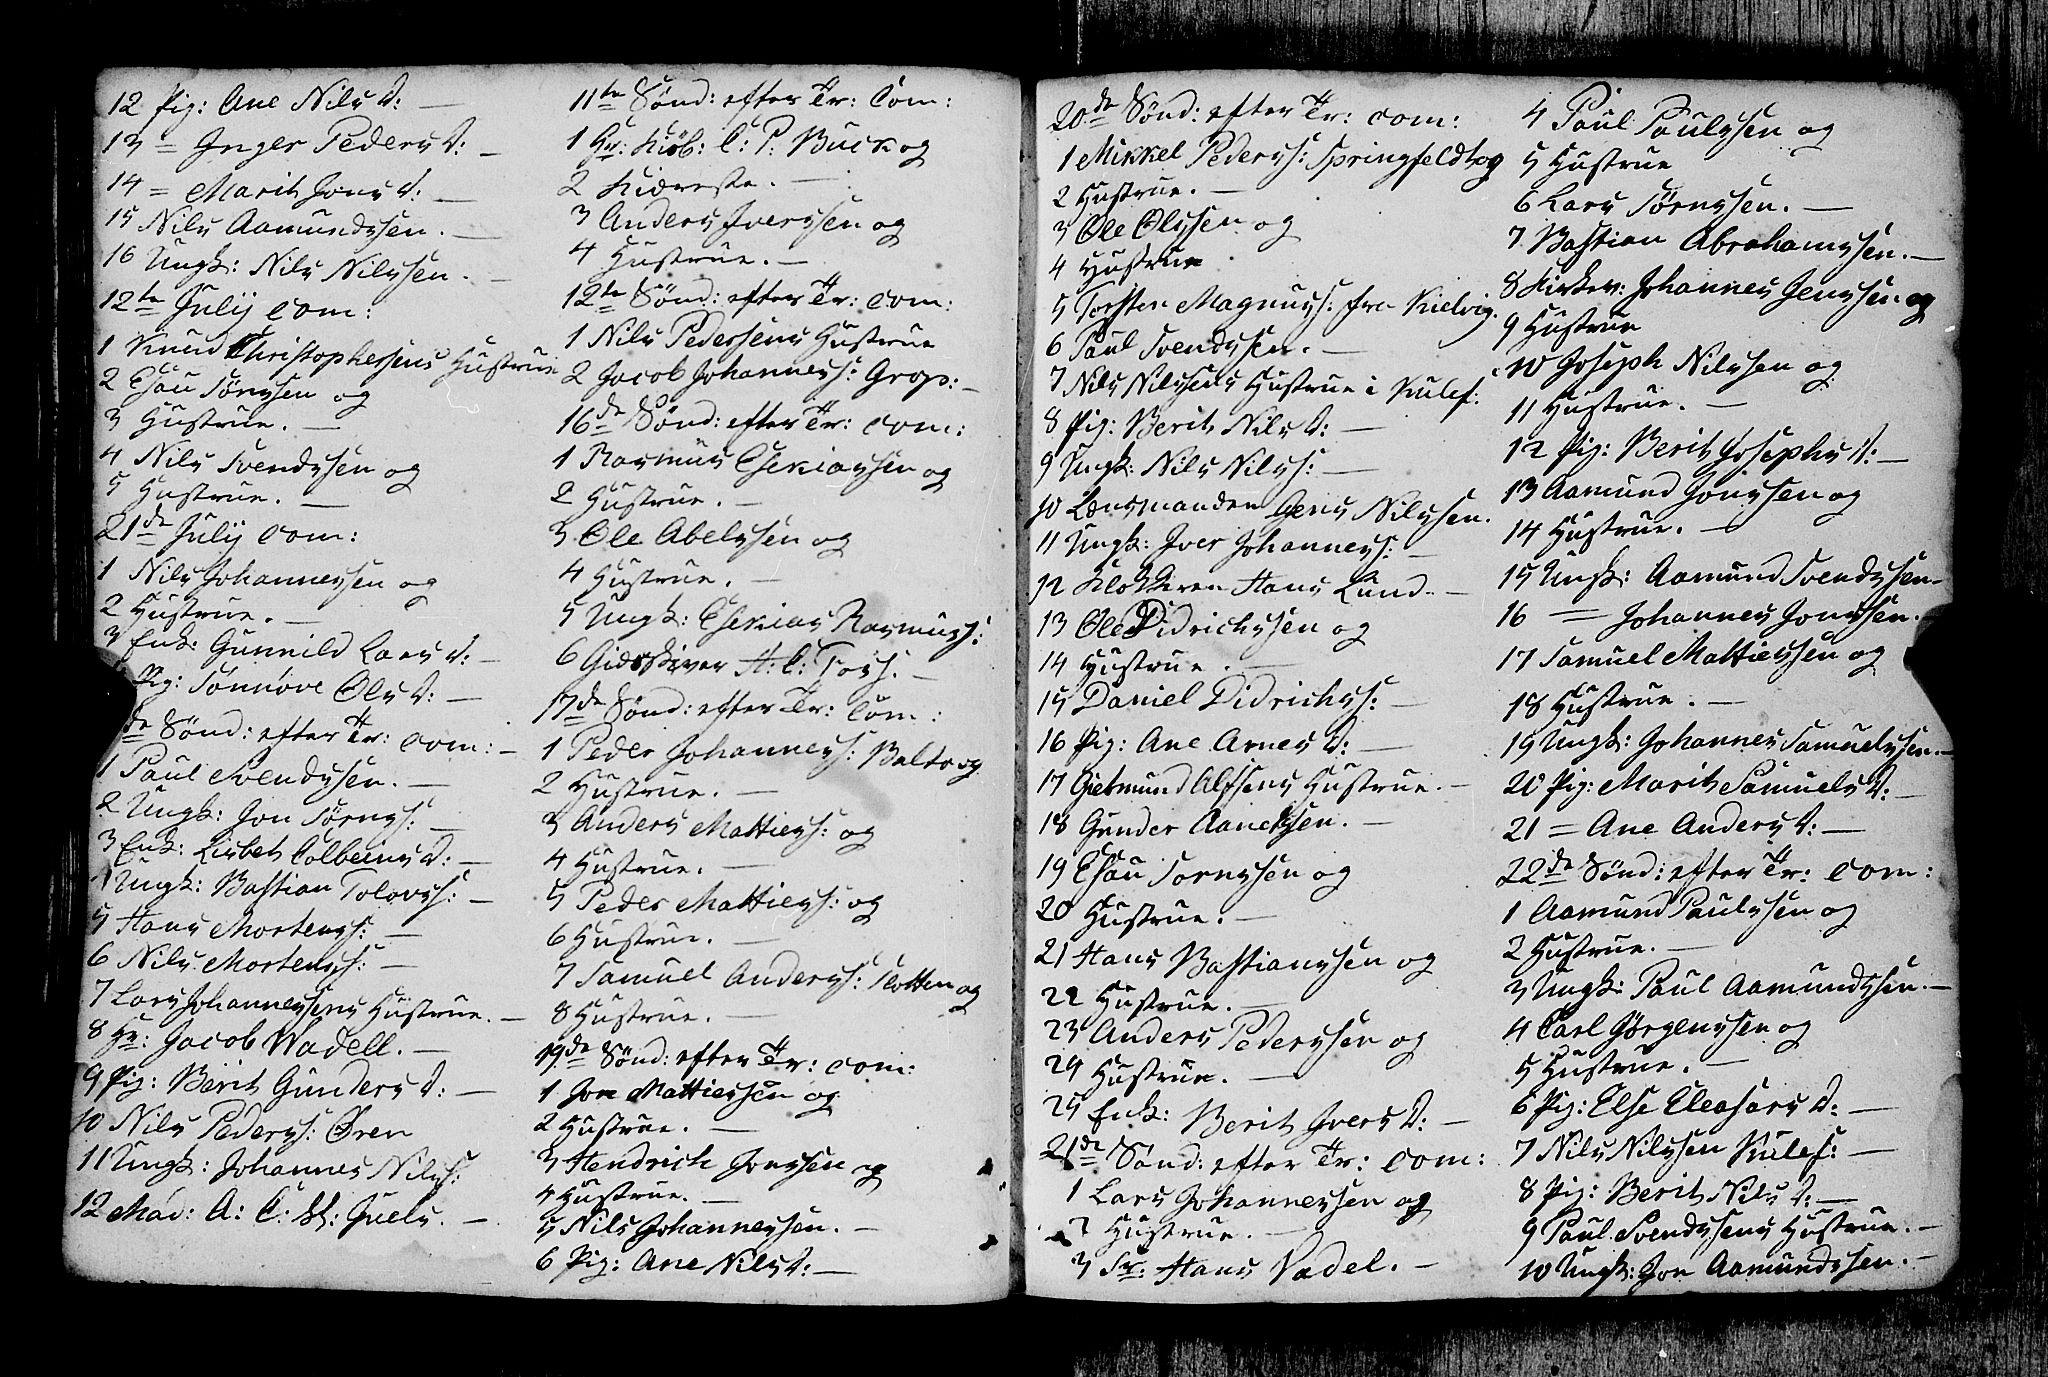 12 Pig: Ane Nils D: —
13 = Inger Peders D: —
14 = Marit Jons D: —
15 Nils Aamundsen. —
16 Ungk: Nils Nilssen. —
12te Julij Com:
1 Knud Christophersens Hustrue
2 Esau Törrissen og
3 Hustrue. —
4 Nils Svendssen og
5 Hustrue. —
21de Julij Com:
1 Nils Johannessen og
2 Hustrue. —
3 Enk: Gunnild Lars D: —
Pig: Sønnøve Ols D: —
de Sönd: efter Tr: Com: —
1 Paul Svendssen. —
2 Ungk: Jon Törriss: —
3 Enk: Lisbet Colbeins D: —
4 Ungk: Bastian Tolovs: —
5 Hans Mortenss: —
6 Nils Mortenss: —
7 Lars Johannessens Hustrue. —
8 Hr: Jacob Wadell. —
9 Pig: Berit Gunders D: —
10 Nils Pederss: Ören
11 Ungk: Johannes Nilss:
12 Mad: A: C: St: Juels. —
11te Sönd: efter Tr: Com:
1 Hr: Kiöb: C: P: Buck og
2 Kiæreste. —
3 Anders Iverssen og
4 Hustrue. —
12te Sönd: efter Tr: Com:
1 Nils Pedersens Hustrue
2 Jacob Johanness: Grop: —
16de Sönd: efter Tr: Com:
1 Rasmus Esekiassen og
2 Hustrue. —
3 Ole Abelssen og
4 Hustrue. —
5 Ungk: Esekias Rasmuss:
6 Gieskiver H: C: Fors. —
17de Sönd: efter Tr: Com:
1 Peder Johanness: Balto og
2 Hustrue. —
3 Anders Mattiess: og
4 Hustrue. —
5 Peder Mattiess: og
6 Hustrue. —
7 Samuel Anderss: Slotten og
8 Hustrue. —
19de Sönd: efter Tr: Com:
1 Jon Mattiessen og
2 Hustrue. —
3 Hendrich Jonssen og
4 Hustrue. —
5 Nils Johannessen. —
6 Pig: Ane Nils D: —
20de Sönd: efter Tr: Com:
1 Mikkel Pederss: Springfeldt og
2 Hustrue. —
3 Ole Olssen og
4 Hustrue
5 Torsten Magnuss: fra Kielvig.
6 Paul Svendssen. —
7 Nils Nilssens Hustrue i Kulef:
8 Pig: Berit Nils D: —
9 Ungk: Nils Nilss: —
10 Lænsmanden Jens Nilssen.
11 Ungk: Iver Johanness: —
12 Klokkeren Hans Lund. —
13 Ole Didrichssen og
14 Hustrue. —
15 Daniel Didrichss: —
16 Pig: Ane Arnes D: —
17 Giermund Alfsens Hustrue. —
18 Gunder Aanessen. —
19 Esau Törrissen og
20 Hustrue. —
21 Hans Bastianssen og
22 Hustrue. —
23 Anders Pederssen og
24 Hustrue. —
25 Enk: Berit Ivers D: —
21de Sönd: efter Tr: Com:
1 Lars Johannessen og
2 Hustrue. —
3 Sr: Hans Vadel. —
4 Paul Paulssen og
5 Hustrue
6 Lars Törrissen. —
7 Bastian Abrahamssen. —
8 Kirkev: Johannes Jenssen og
9 Hustrue
10 Joseph Nilssen og
11 Hustrue. —
12 Pig: Berit Josephs D: —
13 Aamund Jonssen og
14 Hustrue. —
15 Ungk: Aamund Svendssen —
16 = Johannes Jonssen.
17 Samuel Mattiessen og
18 Hustrue. —
19 Ungk: Johannes Samuelssen. —
20 Pig: Marit Samuels D: —
21 = Ane Anders D: —
22de Sönd: efter Tr: Com:
1 Aamund Paulssen og
2 Hustrue. —
3 Ungk: Paul Aamundssen. —
4 Carl Jörgenssen og
5 Hustrue. —
6 Pig: Else Eleasars D: —
7 Nils Nilssen Kulef: —
8 Pig: Berit Nils D: —
9 Paul Svendssens Hustrue. —
10 Ungk: Jon Aamundssen. —